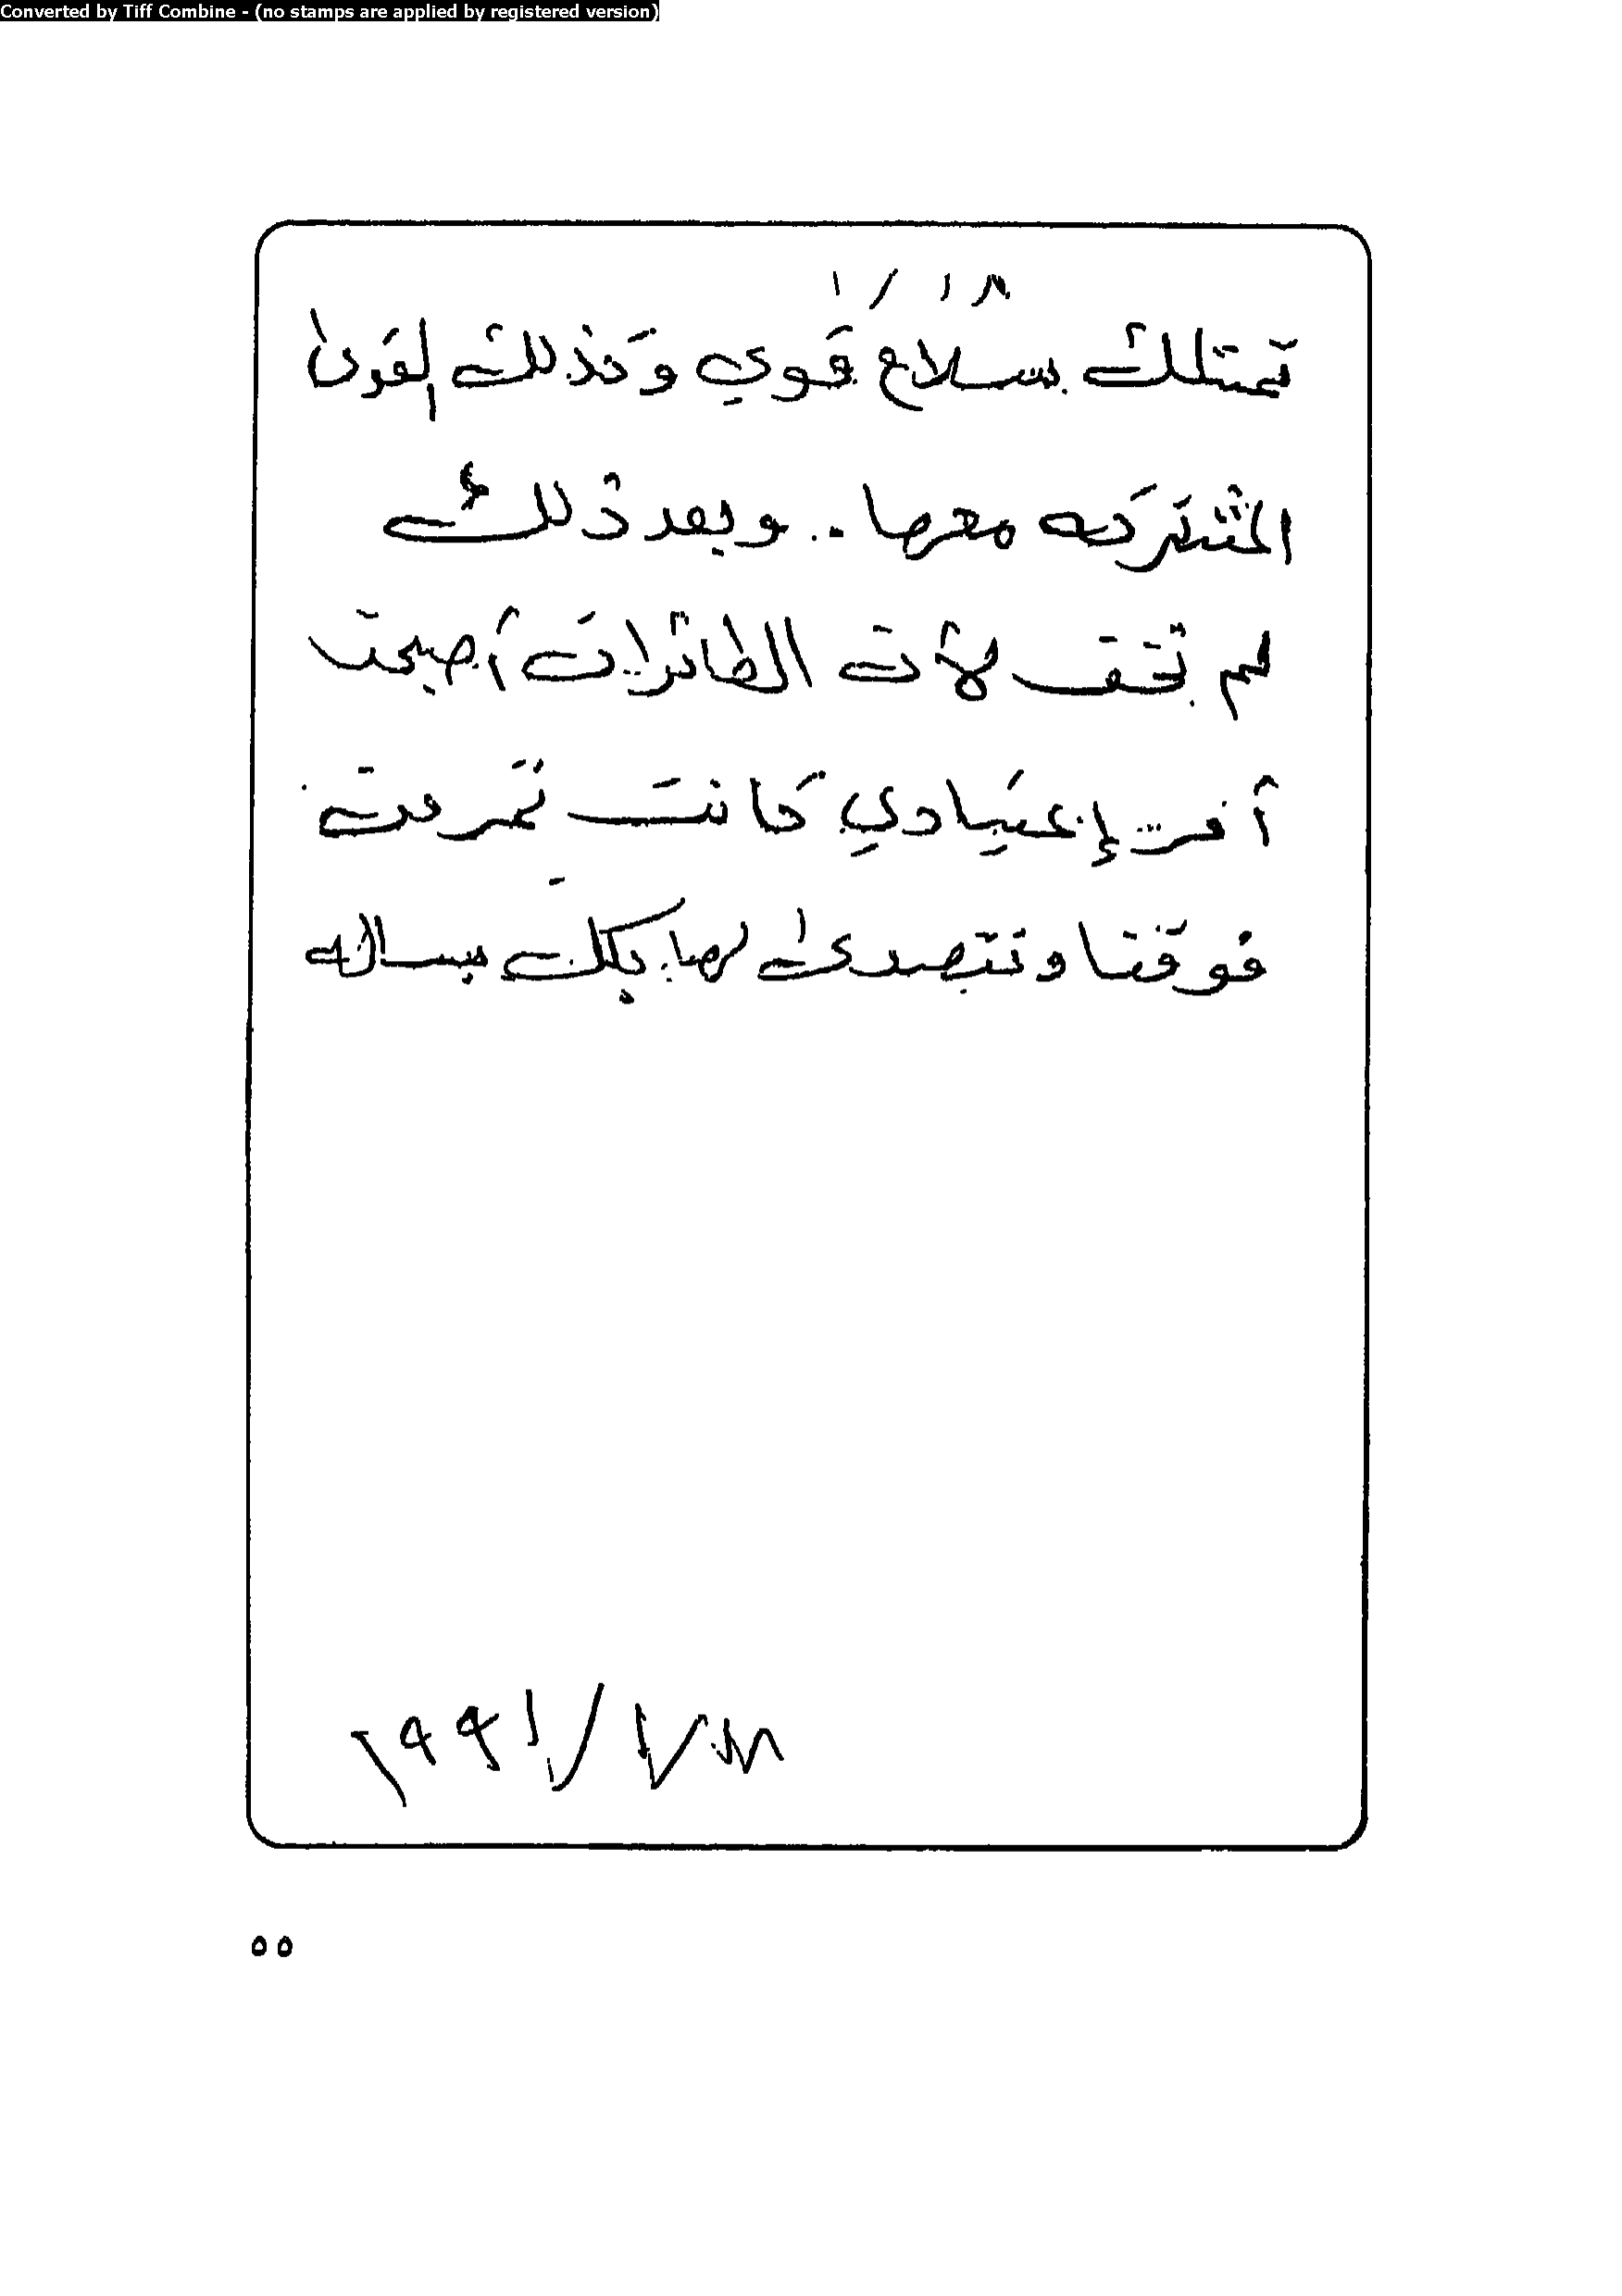 Converted by Tiff Combine - (no stamps are applied by registered version)
١٨ / ١
تمتلك بسلاح قوي وكذلك القوى
المشتركه معها .. وبعد ذلك
لم تخف لأن الطائرات أصبحت
أمر إعتيادي كانت تمر من
فوقنا ونتصدى لها بكل بساله
١٩٩١/١/١٨
٥٥